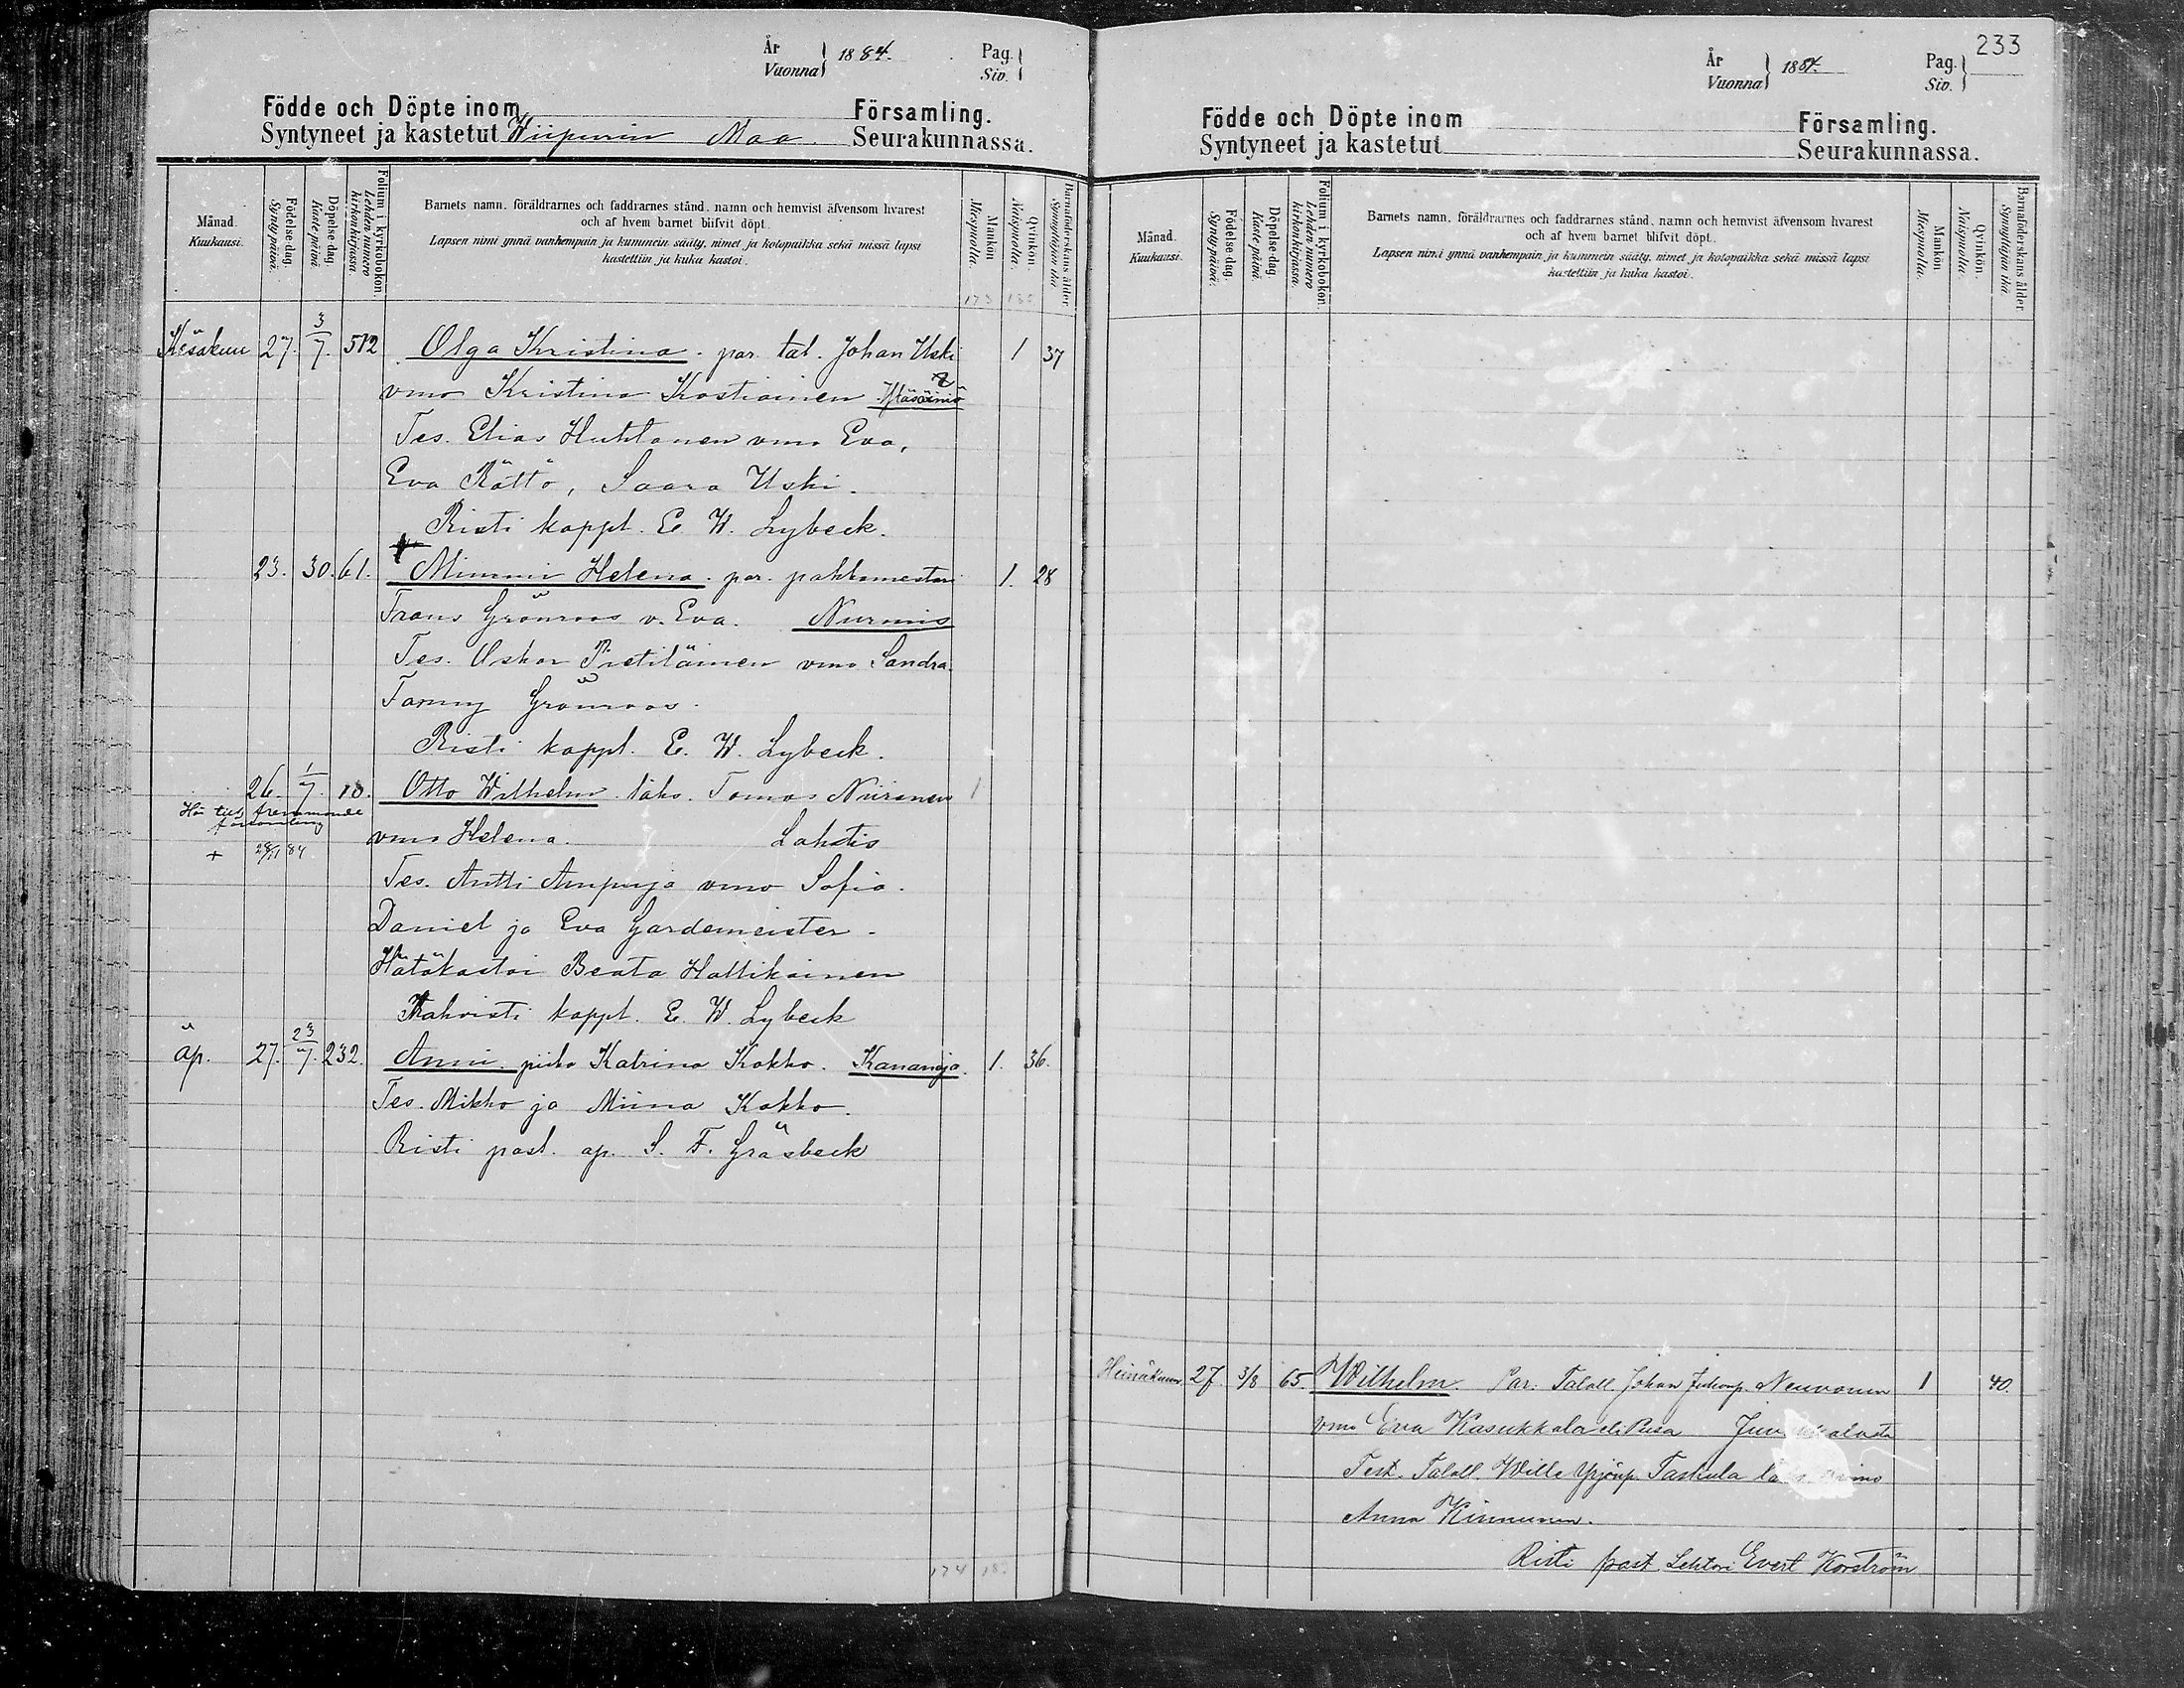 År
Vuonna 1884.
Pag.
Siv.
Födde och Döpte inom Församling.
Syntyneet ja kastetut Wiipurin Maa Seurakunnassa.
Månad. Kuukausi.
Födelse-dag. Synty päivä.
Döpelse-dag. Kaste päivä.
Folium i kyrkoboken. Lehden numero kirkonkirjassa.
Barnets namn, föräldrarnes och faddrarnes stånd, namn och hemvist äfvensom hvarest
och af hvem barnet blifvit döpt.
Lapsen nimi ynnä vanhempain ja kummein sääty, nimet ja kotopaikka sekä missä lapsi
kastettiin ja kuka kastoi.
Mankön. Miespuolia.
Qvinkön. Naispuolia.
Barnaföderskans ålder. Synnyttäjän ikä.
173 130
Kesäkuu 27. 3/7. 512 Olga Kristina. par. tal. Johan Uski 1 37
vmo Kristina Kostiainen
Tes. Elias Huhtanen vmo Eva,
Eva Rättö, Saara Uski.
Risti kappl. E. W. Lybeck.
23. 30. 61. Mimmi Helena. par. pakkamestari 1. 28
Frans Grönroos v. Eva. Nurmis
Tes. Oskar Pietiläinen vmo Sandra.
Fanny Grönroos.
Risti kappl. E. W. Lybeck.
26. 1/7. 10. Otto Wilhelm. läks. Tomas Niiranen 1
Hör till fremmande
församling
vmo Helena. Lahdis
+ 28/11 84.
Tes. Antti Ampuja vmo Sofia.
Daniel ja Eva Gardemeister.
Hätäkastoi Beata Hattikainen
Vahvisti kappl. E. W. Lybeck
äp. 27. 23/7. 232. Anni. piika Katrina Kokko. Kananoja. 1. 36.
Tes. Mikko ja Miina Kokko.
Risti past. ap. S. F. Gräsbeck
174 18.
233
År
Vuonna 1884.
Pag.
Siv.
Födde och Döpte inom Församling.
Syntyneet ja kastetut Seurakunnassa.
Månad. Kuukausi.
Födelse-dag. Synty päivä.
Döpelse-dag. Kaste päivä.
Folium i kyrkoboken. Lehden numero kirkonkirjassa.
Barnets namn, föräldrarnes och faddrarnes stånd, namn och hemvist äfvensom hvarest
och af hvem barnet blifvit döpt.
Lapsen nimi ynnä vanhempain ja kummein sääty, nimet ja kotopaikka sekä missä lapsi
kastettiin ja kuka kastoi.
Mankön. Miespuolia.
Qvinkön. Naispuolia.
Barnaföderskans ålder. Synnyttäjän ikä.
Heinäkuu 27. 3/8 65. Wilhelm. Par. Taloll. Johan Neuvonen 1 40.
vmo Eva Kasukkala eli Pusa
Test. Taloll. Wille Yrjönp. Taskula
Anna Kinnunen.
Risti past. Lehtori Evert Korström